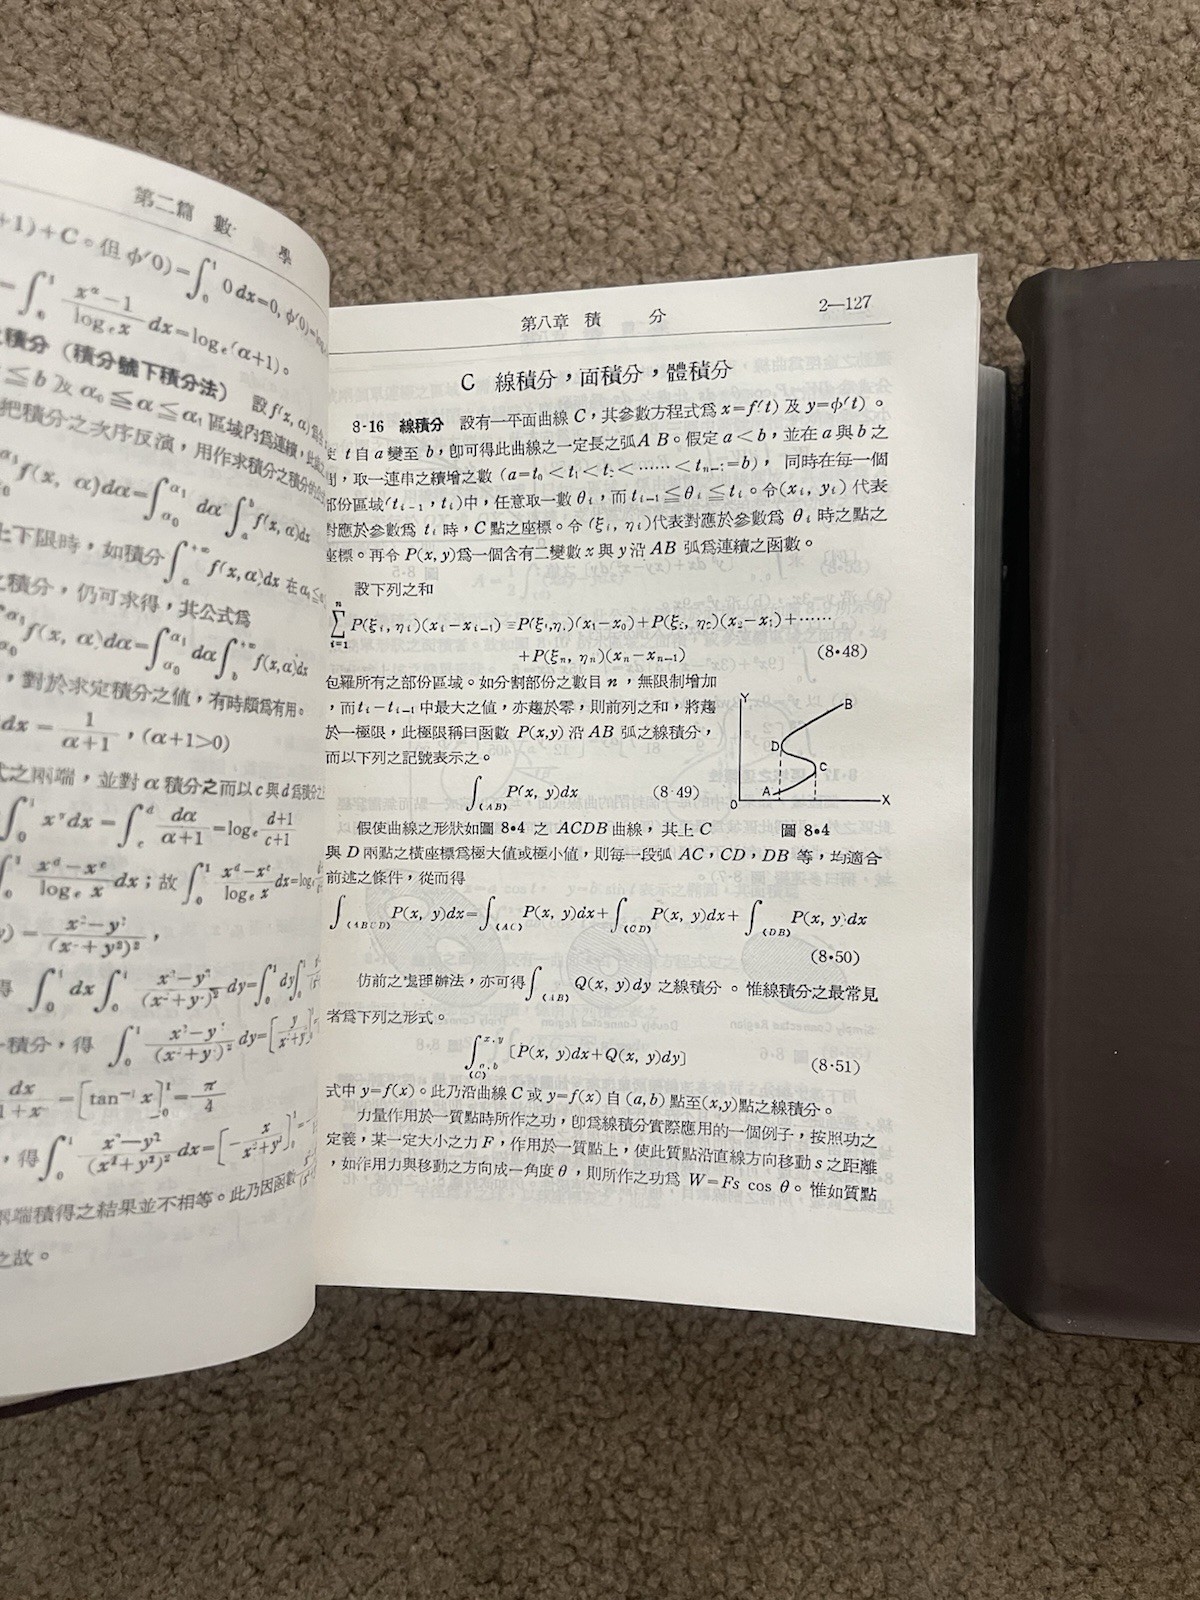 第二篇 數 學
+1)+C。但 φ(0)=∫₀¹ 0 dx=0,
=∫₀¹ (x^α−1)/(logₑ x) dx=logₑ(α+1)。
積分（積分號下積分法） 設 f(x, α)
≦b 及 α₀≦α≦α₁ 區域內爲連續，
把積分之次序反演，用作求積分之積分
f(x, α)dα=∫_{α₀}^{α₁} dα∫_a^b f(x,α)dx
上下限時，如積分∫_a^{+∞} f(x,α)dx 在
積分，仍可求得，其公式爲
f(x, α)dα=∫_{α₀}^{α₁} dα∫_b^{+∞} f(x,α)dx
，對於求定積分之值，有時頗爲有用。
dx = 1/(α+1)，(α+1>0)
式之兩端，並對 α 積分之而以 c 與 d 爲積分之
∫₀¹ x^α dx=∫_c^d dα/(α+1)=logₑ (d+1)/(c+1)
∫₀¹ (x^d−x^c)/(logₑ x) dx；故∫₀¹ (x^d−x^c)/(logₑ x) dx=log
y)=(x²−y²)/(x²+y²)²，
得 ∫₀¹ dx∫₀¹ (x²−y²)/(x²+y²)² dy=∫₀¹ dy∫₀¹
積分，得 ∫₀¹ (x²−y²)/(x²+y²)² dy=[y/(x²+y²)]
dx/(1+x²) =[tan⁻¹ x]₀¹=π/4
，得∫₀¹ (x²−y²)/(x²+y²)² dx=[−x/(x²+y²)]₀¹=
兩端積得之結果並不相等。此乃因函數
之故。
第八章 積 分 2—127
C 線積分，面積分，體積分
8·16 線積分 設有一平面曲線 C，其參數方程式爲 x=f(t) 及 y=φ(t)。
使 t 自 a 變至 b，卽可得此曲線之一定長之弧AB。假定 a<b，並在 a 與 b 之
間，取一連串之續增之數（a=t₀<t₁<t₂<……<tₙ₋₁=b），同時在每一個
部份區域(tᵢ₋₁，tᵢ)中，任意取一數 θᵢ，而 tᵢ₋₁≦θᵢ≦tᵢ。令(xᵢ, yᵢ) 代表
對應於參數爲 tᵢ 時，C 點之座標。令 (ξᵢ, ηᵢ)代表對應於參數爲 θᵢ 時之點之
座標。再令 P(x, y)爲一個含有二變數 x 與 y 沿 AB 弧爲連續之函數。
設下列之和
∑_{i=1}^{n} P(ξᵢ, ηᵢ)(xᵢ−xᵢ₋₁)≡P(ξ₁,η₁)(x₁−x₀)+P(ξ₂, η₂)(x₂−x₁)+……
+P(ξₙ, ηₙ)(xₙ−xₙ₋₁) (8·48)
包羅所有之部份區域。如分割部份之數目 n，無限制增加
，而 tᵢ−tᵢ₋₁ 中最大之值，亦趨於零，則前列之和，將趨
於一極限，此極限稱曰函數 P(x,y) 沿 AB 弧之線積分，
而以下列之記號表示之。
∫_(AB) P(x, y)dx (8·49)
Y
B
D
C
A
O
X
假使曲線之形狀如圖 8•4 之 ACDB 曲線，其上 C
圖 8•4
與 D 兩點之橫座標爲極大值或極小值，則每一段弧 AC，CD，DB 等，均適合
前述之條件，從而得
∫_(ABCD) P(x, y)dx=∫_(AC) P(x, y)dx+∫_(CD) P(x, y)dx+∫_(DB) P(x, y)dx
(8•50)
仿前之處理辦法，亦可得∫_(AB) Q(x, y)dy 之線積分。惟線積分之最常見
者爲下列之形式。
∫_{(C) a,b}^{x,y} [P(x, y)dx+Q(x, y)dy] (8•51)
式中 y=f(x)。此乃沿曲線 C 或 y=f(x) 自 (a,b) 點至(x,y)點之線積分。
力量作用於一質點時所作之功，卽爲線積分實際應用的一個例子，按照功之
定義，某一定大小之力 F，作用於一質點上，使此質點沿直線方向移動 s 之距離
，如作用力與移動之方向成一角度 θ，則所作之功爲 W=Fs cos θ。惟如質點